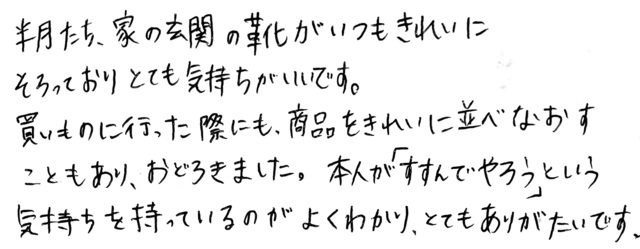 半月たち、家の玄関の靴がいつもきれいに
そろっておりとても気持ちがいいです。
買いものに行った際にも、商品をきれいに並べなおす
こともあり、おどろきました。本人が「すすんでやろう」という
気持ちを持っているのがよくわかり、とてもありがたいです。